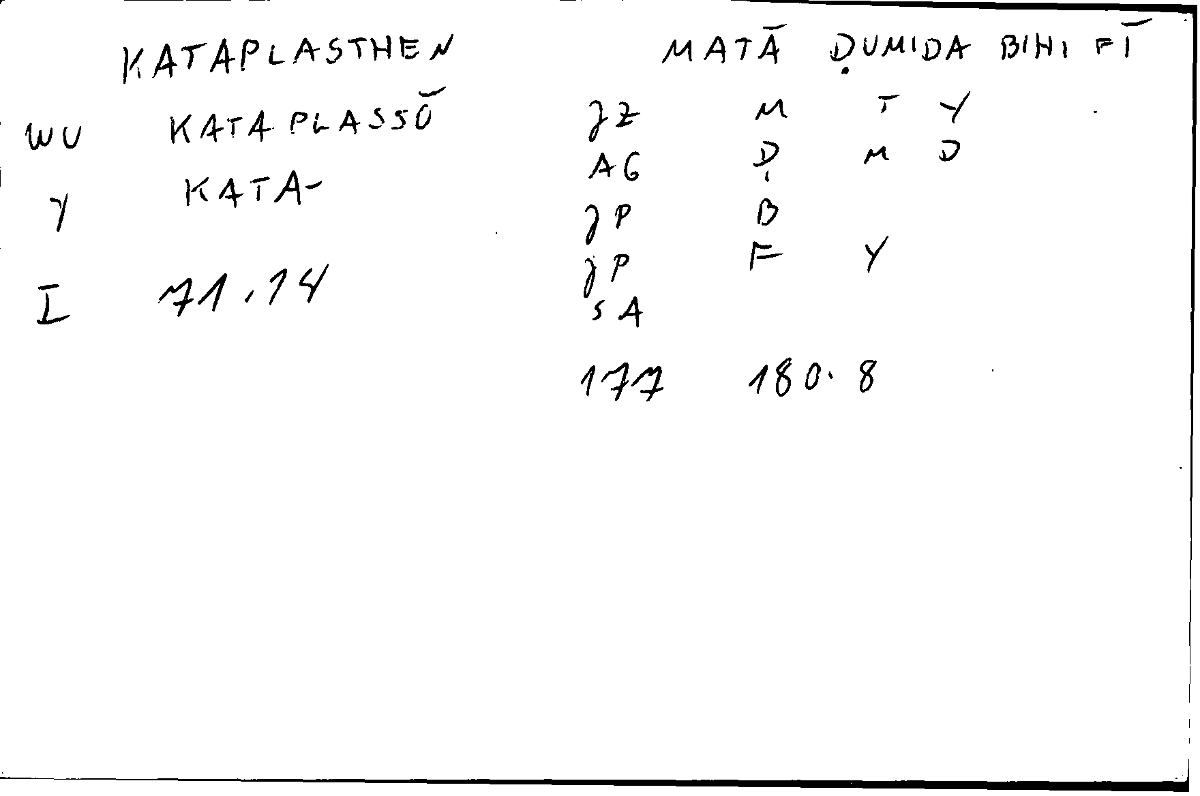 KATAPLASTHEN MATĀ ḌUMIDA BIHI FĪ
WU KATAPLASSŌ JZ M T Y
AG Ḍ M D
Y KATA-
JP B
JP F Y
I 71.14
SA
177 180.8